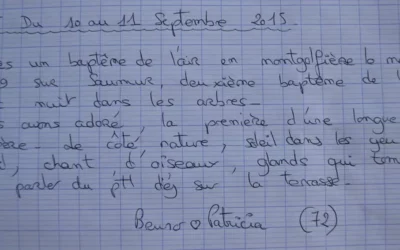 Du 10 au 11 Septembre 2015.
un baptême de l'air en montgolfière
sur Saumur, deuxième baptême de
nuit dans les arbres -
avons adoré, la première d'une longue
de côté, nature, soleil dans les yeu
, chant d'oiseaux, glands qui tom
parler du ptt dèj sur la terrasse -
Bruno ♡ Patricia (72)